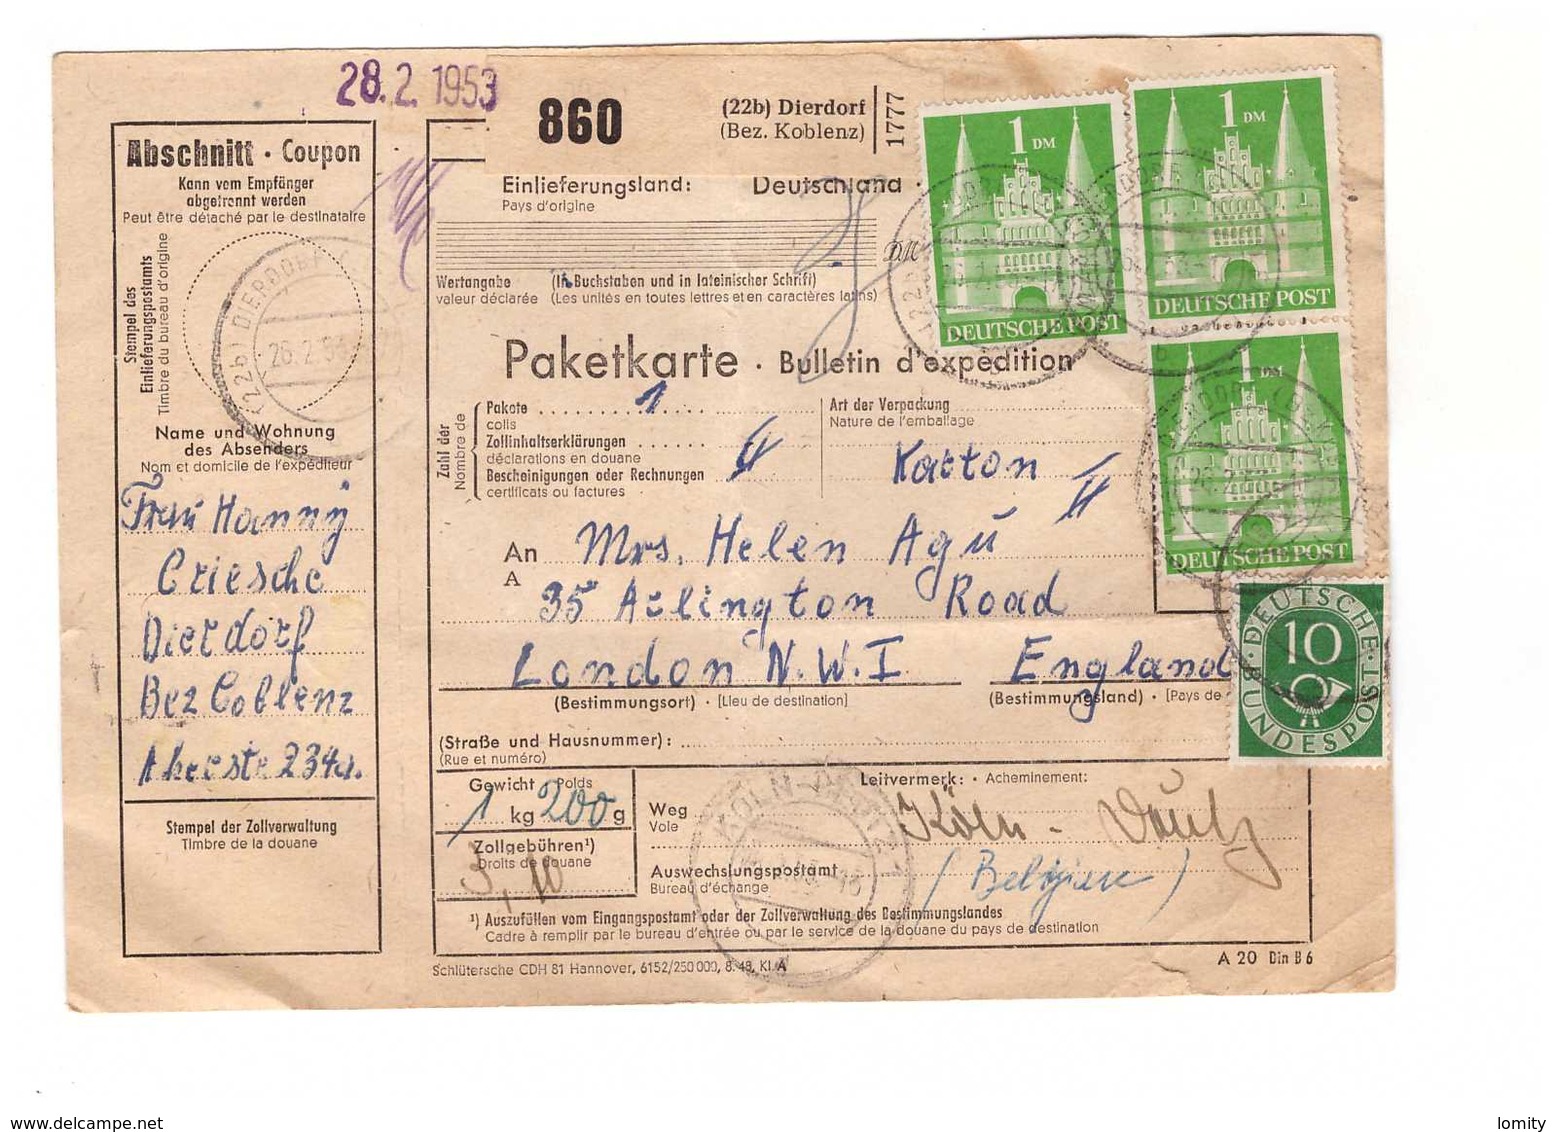 28.2.1953
Abschnitt · Coupon
Kann vom Empfänger
abgetrennt werden
Peut être détaché par le destinataire
Stempel des
Einlieferungspostamts
Timbre du bureau d'origine
(22b) DIERDORF
26.2.53
Name und Wohnung
des Absenders
Nom et domicile de l'expéditeur
Frau Hanny
Griesche
Dierdorf
Bez Coblenz
234a.
Stempel der Zollverwaltung
Timbre de la douane
860
(22b) Dierdorf
(Bez. Koblenz)
1777
Einlieferungsland: Deutschland
Pays d'origine
DM
Wertangabe (In Buchstaben und in lateinischer Schrift)
valeur déclarée (Les unités en toutes lettres et en caractères latins)
Paketkarte · Bulletin d'expédition
Zahl der
Nombre de
Pakete 1
colis
Zollinhaltserklärungen
déclarations en douane
Bescheinigungen oder Rechnungen
certificats ou factures
Art der Verpackung
Nature de l'emballage
Karton
An Mrs. Helen Agu
A
35 Arlington Road
London N.W.I England
(Bestimmungsort) · [Lieu de destination]
(Bestimmungsland) · [Pays de
(Straße und Hausnummer):
(Rue et numéro)
Gewicht Poids
1 kg 200 g
Zollgebühren¹)
Droits de douane
3,10
Leitvermerk: · Acheminement:
Weg
Voie
Köln - Deutz
Auswechslungspostamt
Bureau d'échange
(Belgien)
¹) Auszufüllen vom Eingangspostamt oder der Zollverwaltung des Bestimmungslandes
Cadre à remplir par le bureau d'entrée ou par le service de la douane du pays de destination
Schlütersche CDH 81 Hannover, 6152/250 000, 8. 48, Kl. A
A 20 Din B 6
1 DM
DEUTSCHE POST
1 DM
DEUTSCHE POST
1 DM
DEUTSCHE POST
DEUTSCHE BUNDESPOST
10
KÖLN-DEUTZ
www.delcampe.net
lomity